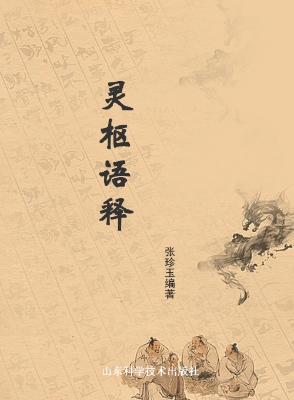 灵枢语释
张珍玉编著
山东科学技术出版社